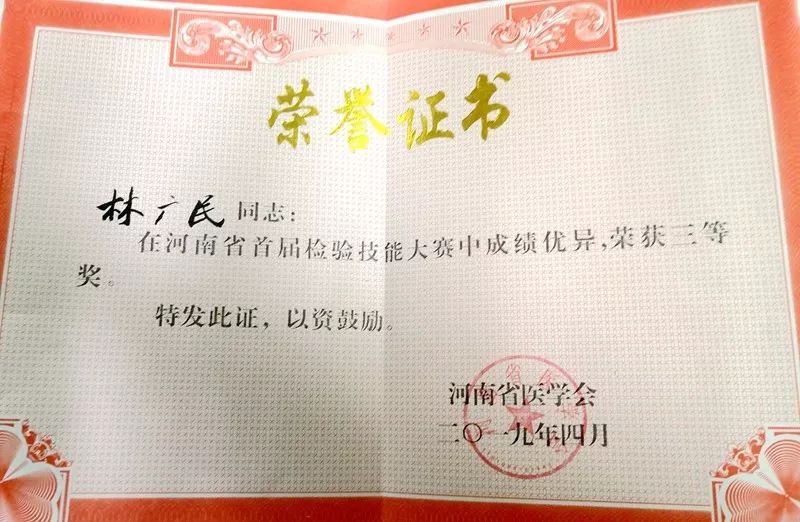 荣誉证书
林广民同志：
在河南省首届检验技能大赛中成绩优异,荣获三等
奖。
特发此证，以资鼓励。
河南省医学会
二〇一九年四月